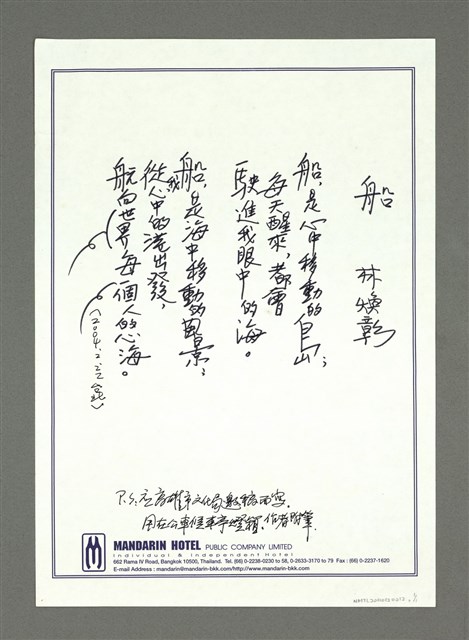 船
林煥彰
船，是心中移動的島；
每天醒來，都會
駛進我眼中的海。
船，是海中移動的風景；
從我心中的港出發，
航向世界每一個人的心海。
P.S.應高雄市文化局邀稿而寫，
用在公車候車亭燈箱，作者附筆
MANDARIN HOTEL PUBLIC COMPANY LIMITED
Individual & Independent Hotel
662 Rama IV Road, Bangkok 10500, Thailand. Tel. (66) 0-2238-0230 to 58, 0-2633-3170 to 79 Fax : (66) 0-2237-1620
E-mail Address : mandarin@mandarin-bkk.com/http://www.mandarin-bkk.com